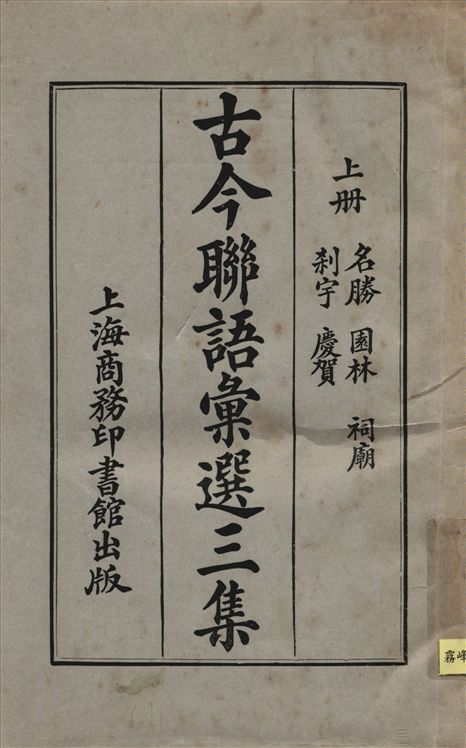 上册
名勝 園林 祠廟
刹宇 慶賀
古今聯語彙選三集
上海商務印書館出版
霧峰